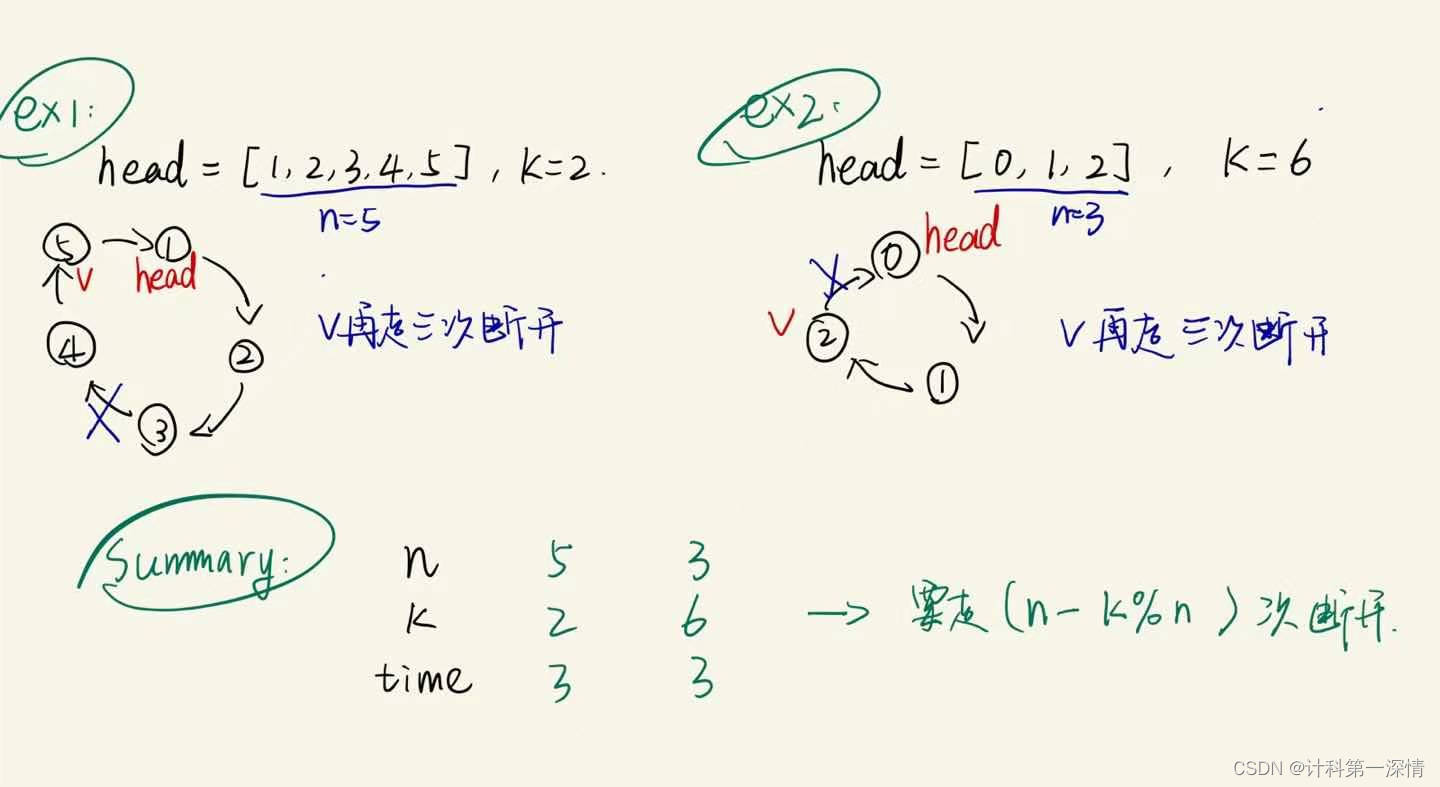 ex1:
head = [1, 2, 3, 4, 5], k=2.
n=5
5
1
V
head
4
2
3
V再走三次断开
ex2:
head = [0, 1, 2], K=6
n=3
0
head
V
2
1
V再走三次断开
Summary:
n 5 3
K 2 6
time 3 3
→ 要走(n - k%n)次断开.
CSDN @计科第一深情